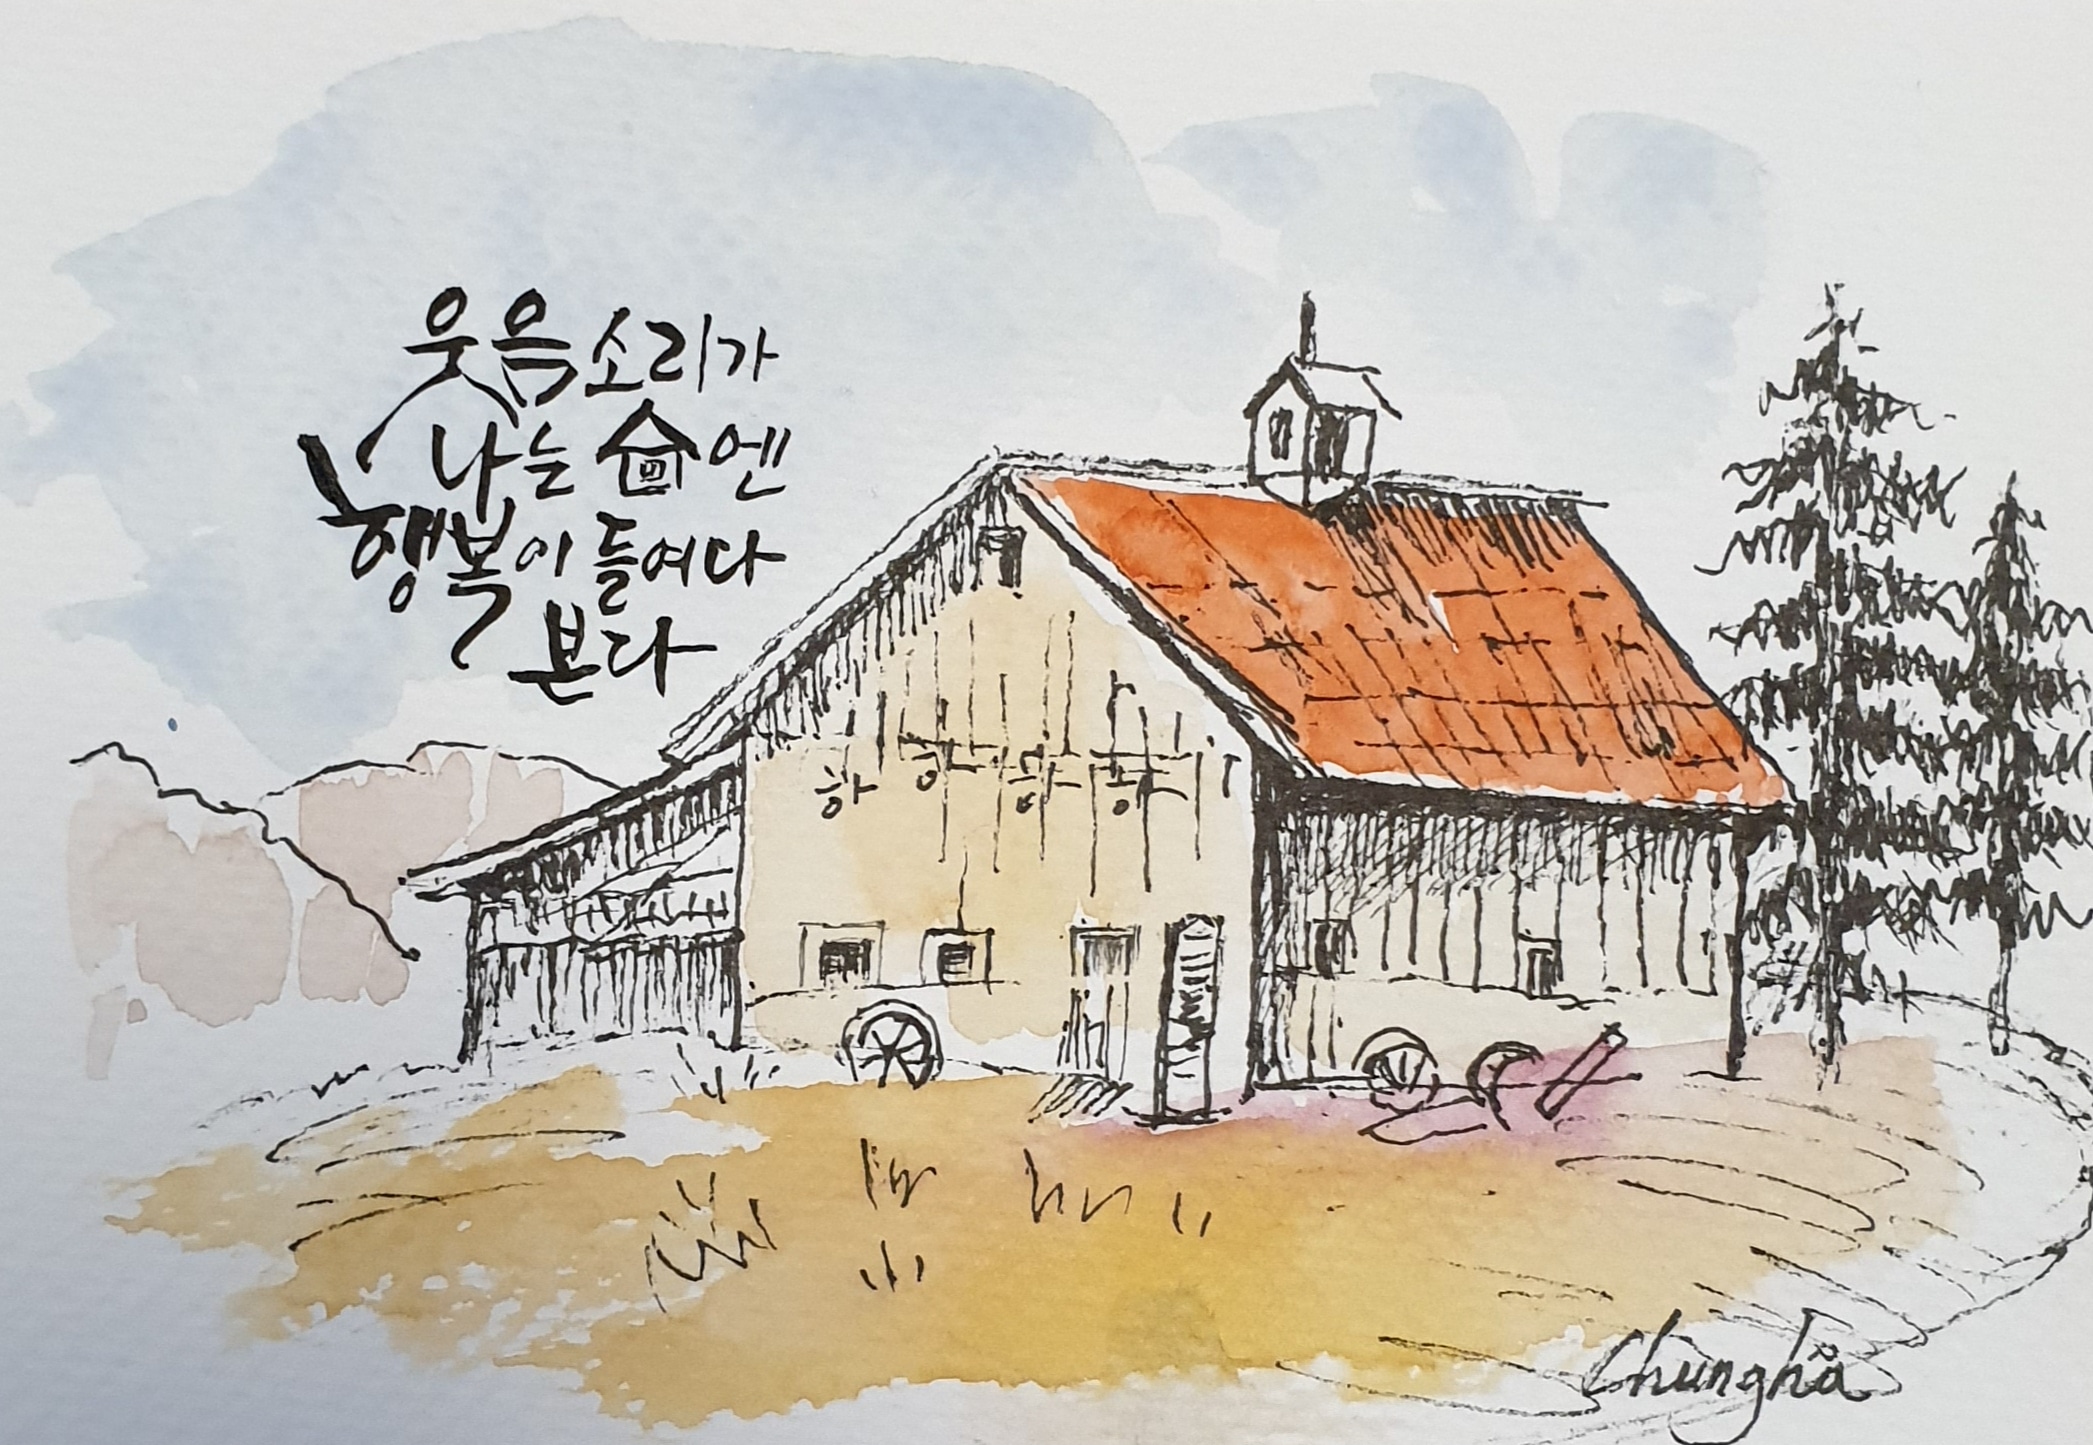 웃음소리가
나는 집엔
행복이 들여다
본다
하 하 하 하
Chungha